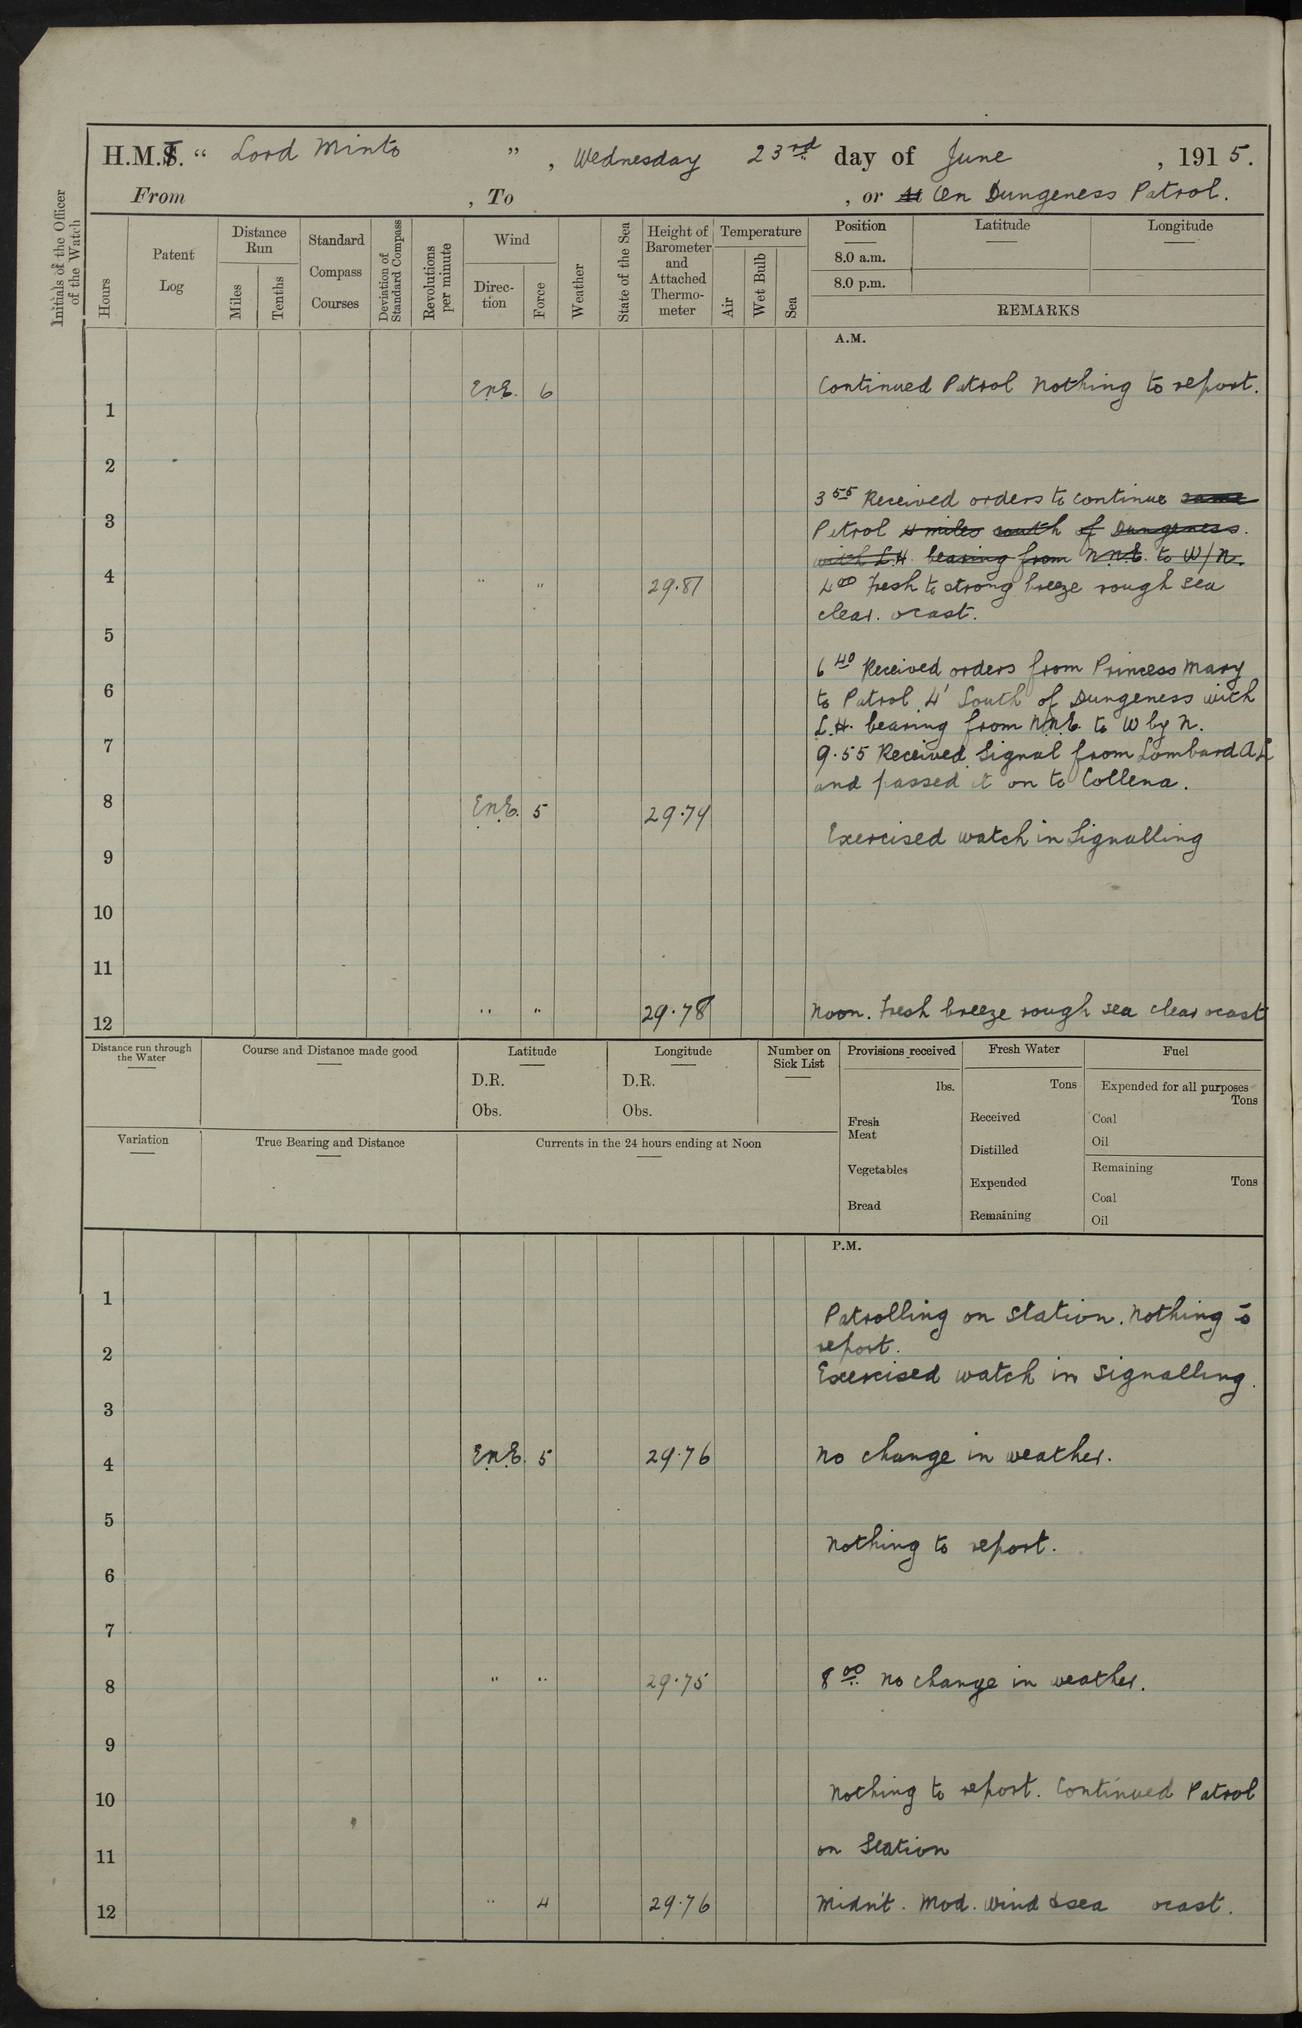 H.M.T. " Lord Minto " , Wednesday 23rd day of June , 1915.
From , To , or At On Dungeness Patrol.
Initials of the Officer of the Watch
Hours
Patent Log
Distance Run
Miles
Tenths
Standard Compass Courses
Deviation of Standard Compass
Revolutions per minute
Wind
Direc-tion
Force
Weather
State of the Sea
Height of Barometer and Attached Thermo-meter
Temperature
Air
Wet Bulb
Sea
Position
Latitude
Longitude
8.0 a.m.
8.0 p.m.
REMARKS
A.M.
EnE. 6 Continued Patrol Nothing to report.
1
2
3 55 Received orders to continue same
3
Patrol 4 miles south of Dungeness.
with L.H. bearing from N.N.E. to W/N.
4 " " 29.81 4 00 Fresh to strong breeze rough sea
clear. ocast.
5
6 40 Received orders from Princess Mary
6
to Patrol 4' South of Dungeness with
L.H. bearing from N.N.E. to W by N.
7
9.55 Received Signal from Lombard A.L
and passed it on to Collena.
8 E.N.E. 5 29.79
Exercised watch in Signalling
9
10
11
12 " " 29.78 Noon. Fresh breeze rough sea clear ocast
Distance run through the Water
Course and Distance made good
Latitude
D.R.
Obs.
Longitude
D.R.
Obs.
Number on Sick List
Provisions received
lbs.
Fresh Meat
Vegetables
Bread
Fresh Water
Tons
Received
Distilled
Expended
Remaining
Fuel
Expended for all purposes
Tons
Coal
Oil
Remaining
Tons
Coal
Oil
Variation
True Bearing and Distance
Currents in the 24 hours ending at Noon
P.M.
1
Patrolling on Station. Nothing to
2
report.
Exercised watch in signalling.
3
4 E.N.E. 5 29.76 No change in weather.
5
Nothing to report.
6
7
8 " " 29.75 8 00 No change in weather.
9
10 Nothing to report. Continued Patrol
11 on Station
12 " 4 29.76 Midn't. Mod. Wind & sea ocast.